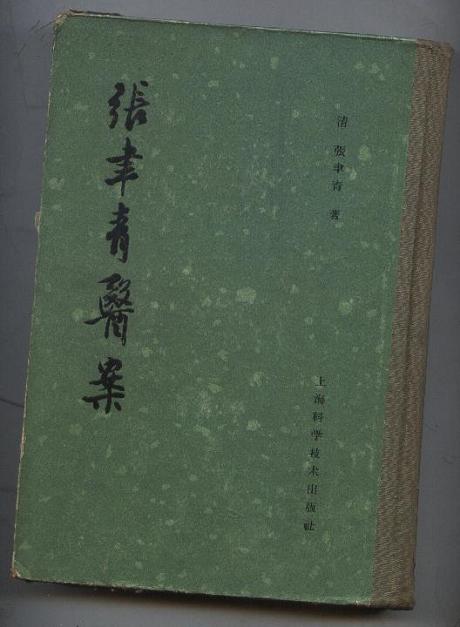 張聿青醫案
清 張聿青 著
上海科学技术出版社